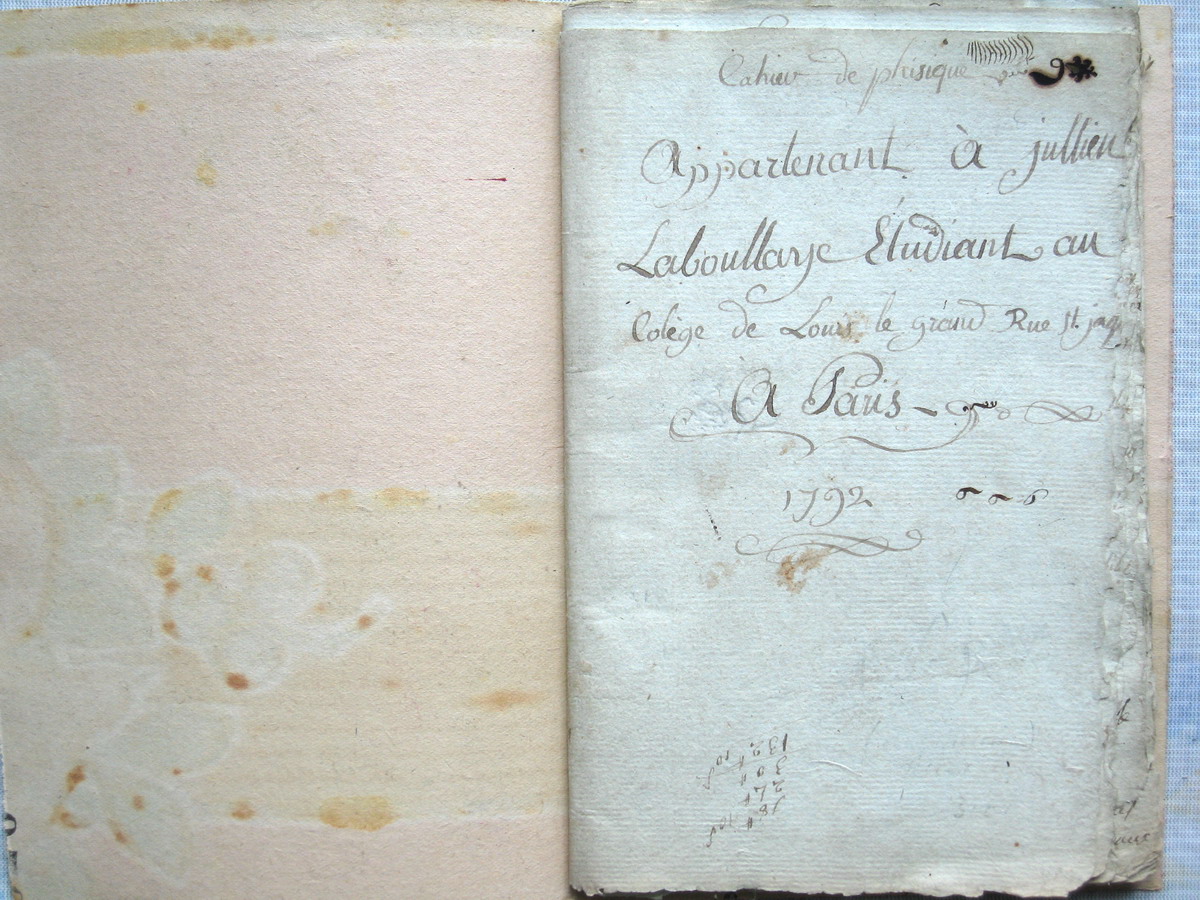 Cahier de phisique
Appartenant à jullien
Laboullaye Étudiant au
Colège de Louis le grand Rue st. jaq
A Paris
1792